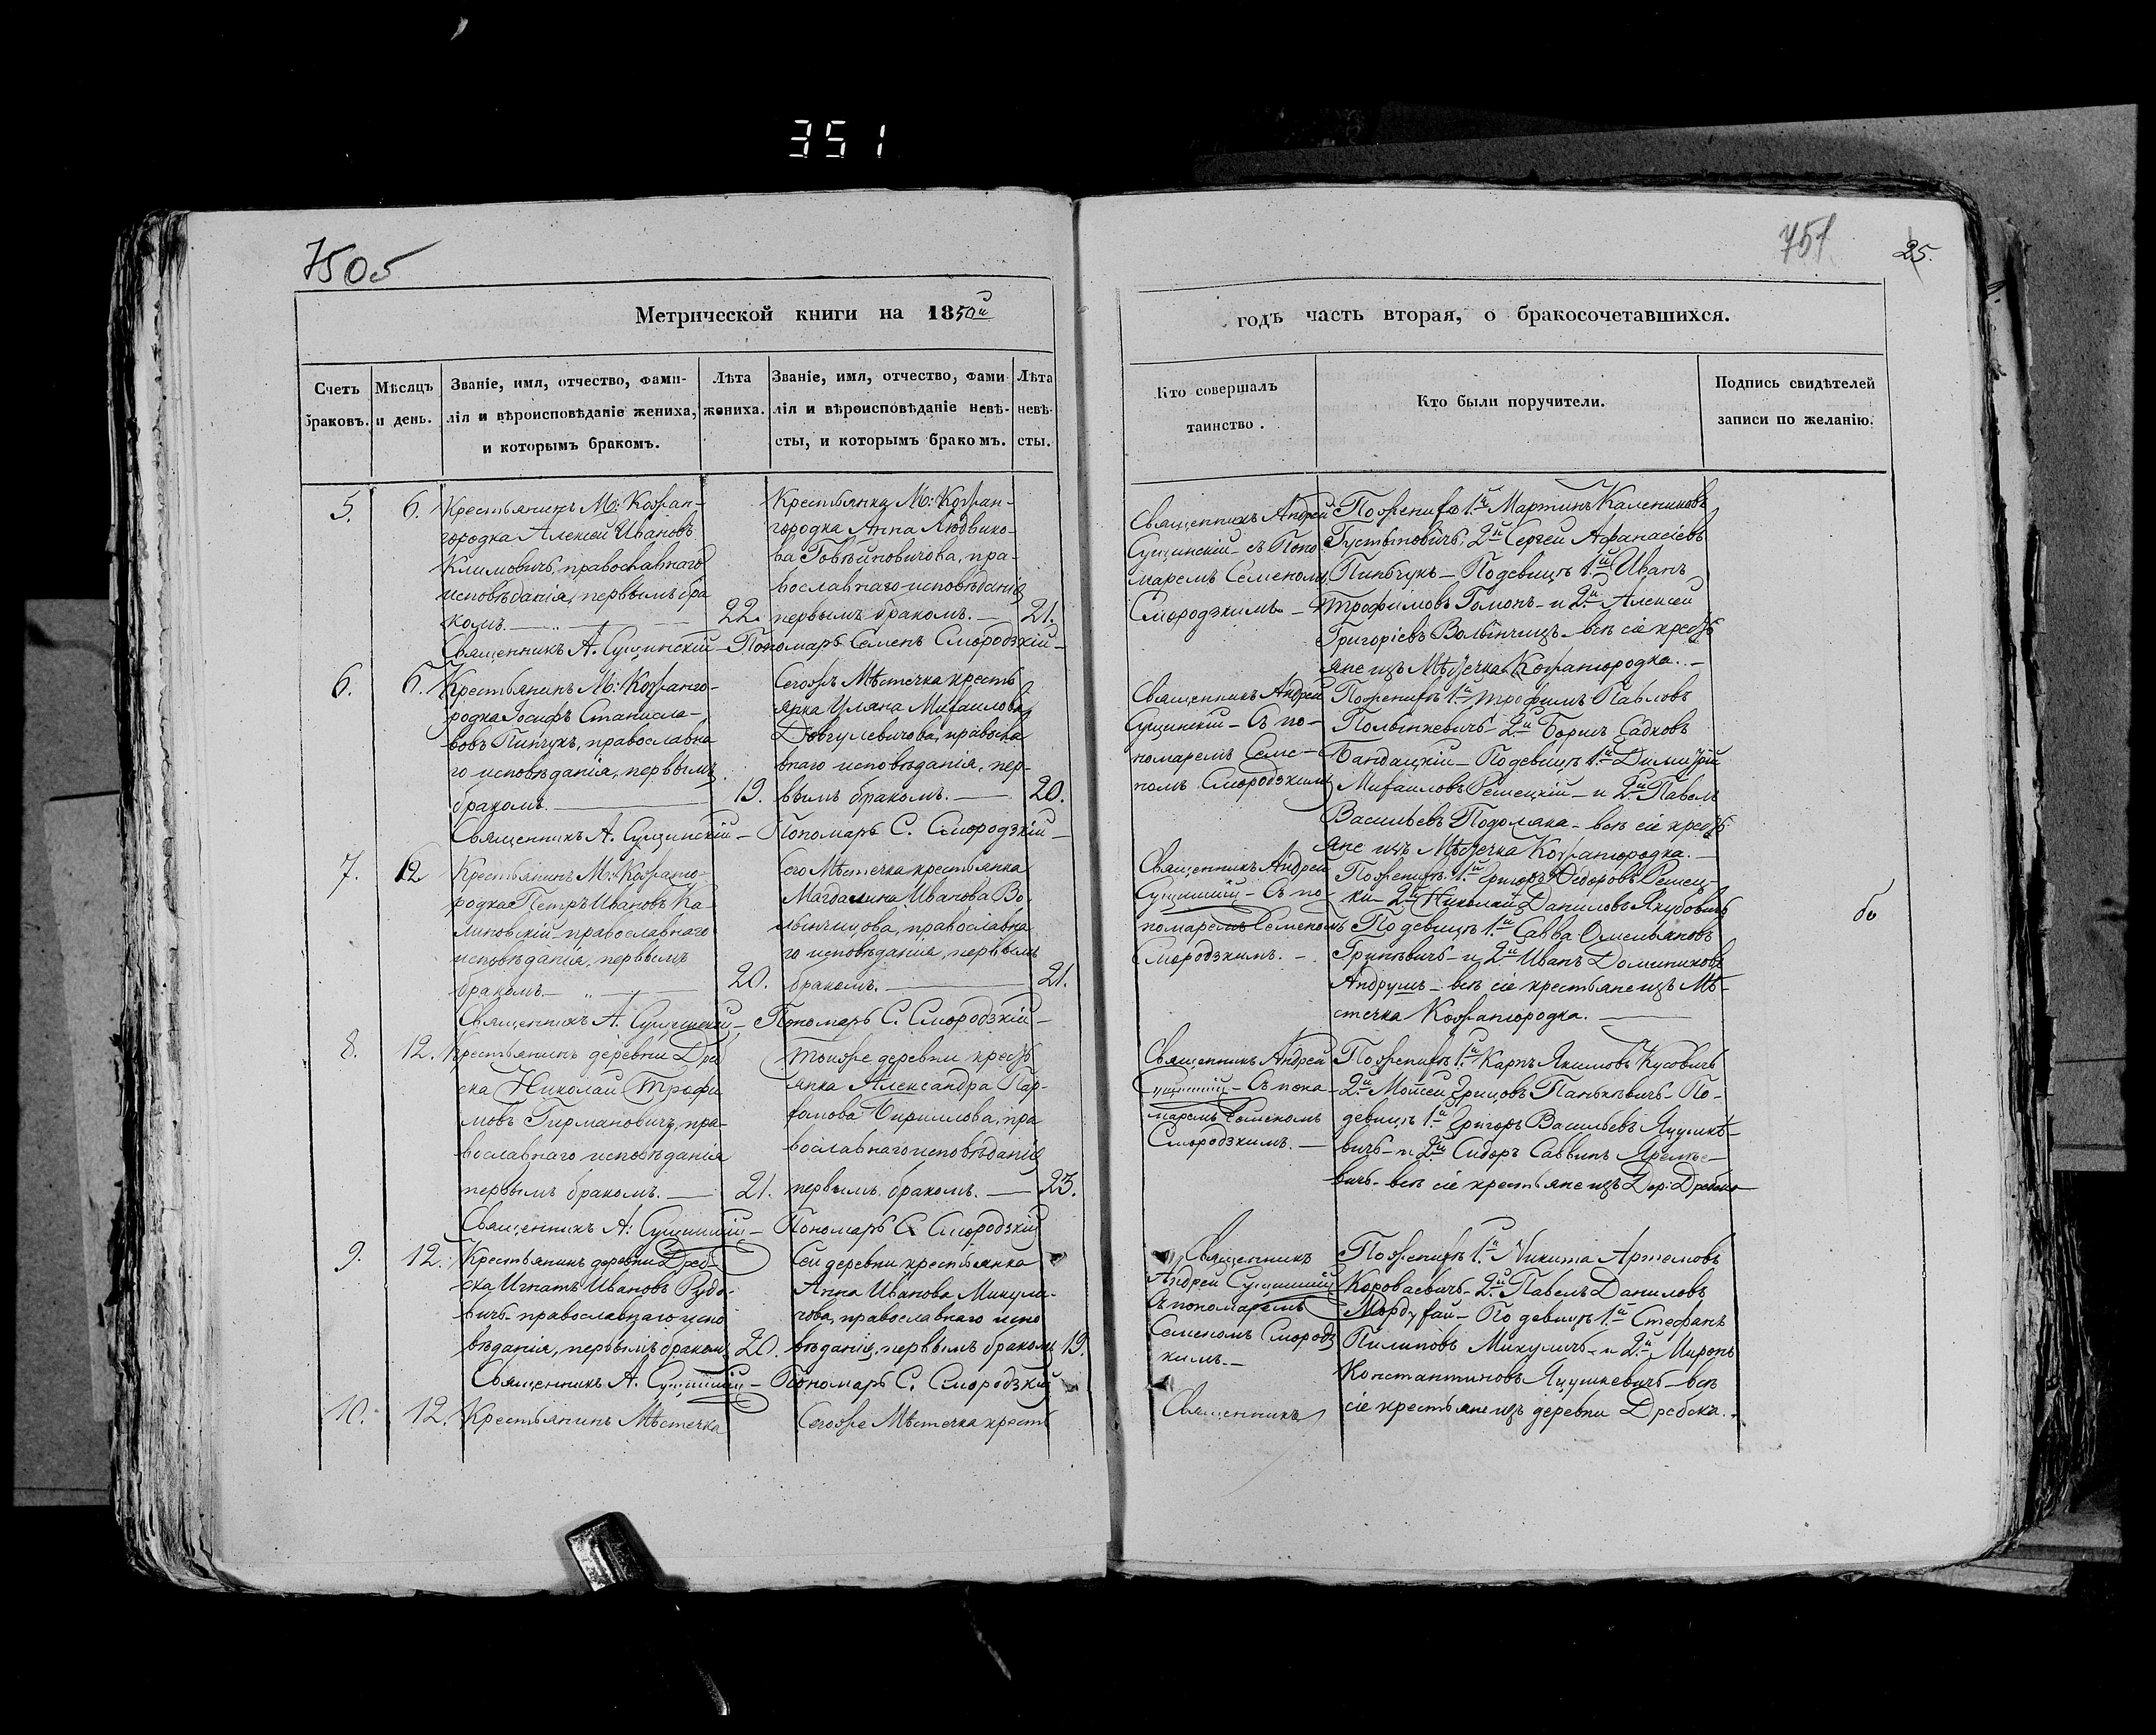 351
7505
751
25.
Метрической книги на 1850й
годъ часть вторая, о бракосочетавшихся.
Счетъ браковъ.
Мѣсяцъ и день.
Званіе, имя, отчество, фами-
лія и вѣроисповѣданіе жениха,
и которымъ бракомъ.
Лѣта жениха.
Званіе, имя, отчество, фами
лія и вѣроисповѣданіе невѣ-
сты, и которымъ бракомъ.
Лѣта невѣ-
сты.
Кто совершалъ
таинство.
Кто были поручители.
Подпись свидѣтелей
записи по желанію.
5. 6.
Крестьянинъ М: Кожан-
городка Алексей Ивановъ
Климовичъ, православнаго
исповѣданія, первымъ бра
комъ. — 22.
Крестьянка М: Кожан-
городка Анна Людвико-
ва Говѣйновичова, пра-
вославнаго исповѣданія
первымъ бракомъ. — 21.
Священникъ А. Сущинскій — Пономарь Семенъ Смородзкій —
Священникъ Андрей
Сущинскій — съ Поно
маремъ Семеномъ
Смородзкимъ —
По женихѣ 1й Мартинъ Калениковъ
Густыновичъ. 2й Сергей Афанасіевъ
Пинчукъ — По девицѣ 1й Иванъ
Трофимовъ Гомонъ — и 2й Алексей
Григоріевъ Волынчицъ — всѣ сіе кресть
яне изъ Мѣстечка Кожангородка. —
6. 6.
Крестьянинъ М: Кожанго-
родка Іосифъ Станисла-
вовъ Пинчукъ, православна
го исповѣданія, первымъ
бракомъ. — 19.
Сегожъ Мѣстечка кресть
янка Уляна Михаилова
Довгулевичова, правосла
внаго исповѣданія, пер-
вымъ бракомъ. — 20.
Священникъ А. Сущинскій — Пономарь С. Смородзкій —
Священникъ Андрей
Сущинскій — Съ по-
номаремъ Семе-
номъ Смородзкимъ
По женихѣ 1й Трофимъ Павловъ
Полынкевичъ — 2й Борисъ Садковъ
Бандацкій — По девицѣ 1й Димитрій
Михаиловъ Решецкій — и 2й Павелъ
Васильевъ Подоляка — всѣ сіе кресть
яне изъ Мѣстечка Кожангородка. —
7. 12
Крестьянинъ М: Кожанго-
родка Петръ Ивановъ Ка-
линовскій — православнаго
исповѣданія, первымъ
бракомъ — 20.
Сего Мѣстечка крестьянка
Магдалина Иванова Во-
лынчицова, православна
го исповѣданія, первымъ
бракомъ. — 21.
Священникъ А. Сущинскій — Пономарь С. Смородзкій —
Священникъ Андрей
Сущинскій — Съ по-
номаремъ Семеномъ
Смородзкимъ. —
По женихѣ 1й Григоръ Ѳедоровъ Решец-
кій — 2й Николай Даниловъ Якубовичъ
По девицѣ 1й Савва Омельяновъ
Гриневичъ — и 2й Иванъ Доминиковъ
Андрушъ — всѣ сіе крестьяне изъ Мѣ-
стечка Кожангородка. —
8. 12.
Крестьянинъ деревни Дреб
ска Николай Трофи
мовъ Гирмановичъ, пра-
вославнаго исповѣданія
первымъ бракомъ. — 21.
Тоиже деревни кресть
янка Александра Пар-
хомова Кирилова, пра
вославнаго исповѣданія
первымъ бракомъ. — 23.
Священникъ А: Сущинскій — Пономарь С. Смородзкій
Священникъ Андрей
Сущинскій — Съ поно-
маремъ Семеномъ
Смородзкимъ. —
По женихѣ 1й Карпъ Якимовъ Кусовичъ
2й Мойсей Грицовъ Паньковичъ — По-
девицѣ 1й Григоръ Васильевъ Яцушке-
вичъ — и 2й Сидоръ Саввинъ Яремке-
вичъ — всѣ сіе крестьяне изъ Дер: Дребска
9. 12.
Крестьянинъ деревни Дреб-
ска Игнатъ Ивановъ Рудо-
вичъ — православнаго испо
вѣданія, первымъ бракомъ 20.
Сей деревни крестьянка
Анна Иванова Микули-
чова, православнаго испо
вѣданія, первымъ бракомъ 19.
Священникъ А. Сущинскій — Пономарь С. Смородзкій
Священникъ
Андрей Сущинскій
Съ пономаремъ
Семеномъ Смородз
кимъ. —
По женихѣ 1й Никита Артемовъ
Короваевичъ — 2й Павелъ Даниловъ
Мордухай — По девицѣ 1й Стефанъ
Пилиповъ Микуличъ — и 2й Миронъ
Константиновъ Яцушкевичъ — всѣ
сіе крестьяне изъ деревни Дребска. —
10. 12.
Крестьянинъ Мѣстечка
Сегоже Мѣстечка кресть
Священникъ